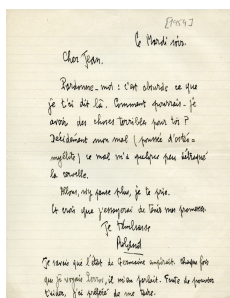 [1954]
Ce Mardi soir.
Cher Jean.
Pardonne-moi : c'est absurde ce que
je t'ai dit là. Comment pourrais-je
avoir des choses terribles pour toi ?
Décidément mon mal (poussée d'ostéo-
myélite) ce mal m'a quelque peu détraqué
la cervelle.
Allons, n'y pense plus, je te prie.
Et crois que j'essayerai de tenir mes promesses.
Je t'embrasse
Roland
Je savais que l'état de Germaine empirait. Chaque fois
que je voyais, il m'en parlait. Faute de pouvoir
t'aider, j'ai préféré me taire.